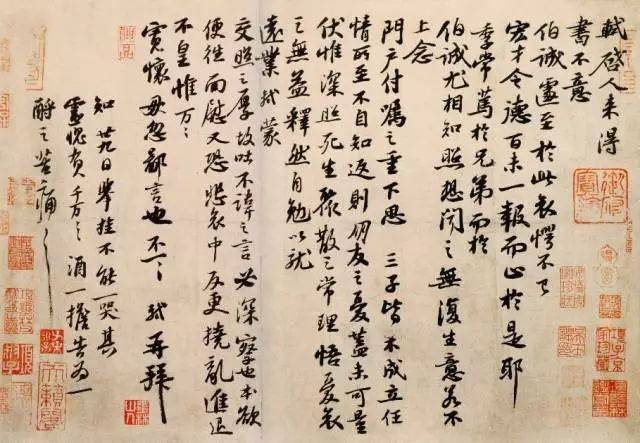 軾啓人來得
書不意
伯誠遽至於此哀愕不已
宏才令德百未一報而止於是耶
季常篤於兄弟而於
伯誠尤相知照想聞之無復生意若不
上念
門户付囑之重下思三子皆不成立任
情所至不自知返則朋友之憂蓋未可量
伏惟深照死生聚散之常理悟憂哀
之無益釋然自勉以就
遠業軾蒙
交照之厚故吐不諱之言必深察也本欲
便往面慰又恐悲哀中反更撓亂進退
不皇惟万〻
寬懷毋忽鄙言也不一〻軾再拜
知廿九日舉挂不能一哭其
靈愧負千万〻酒一擔告為一
酹之苦痛〻〻
項子京家珍藏